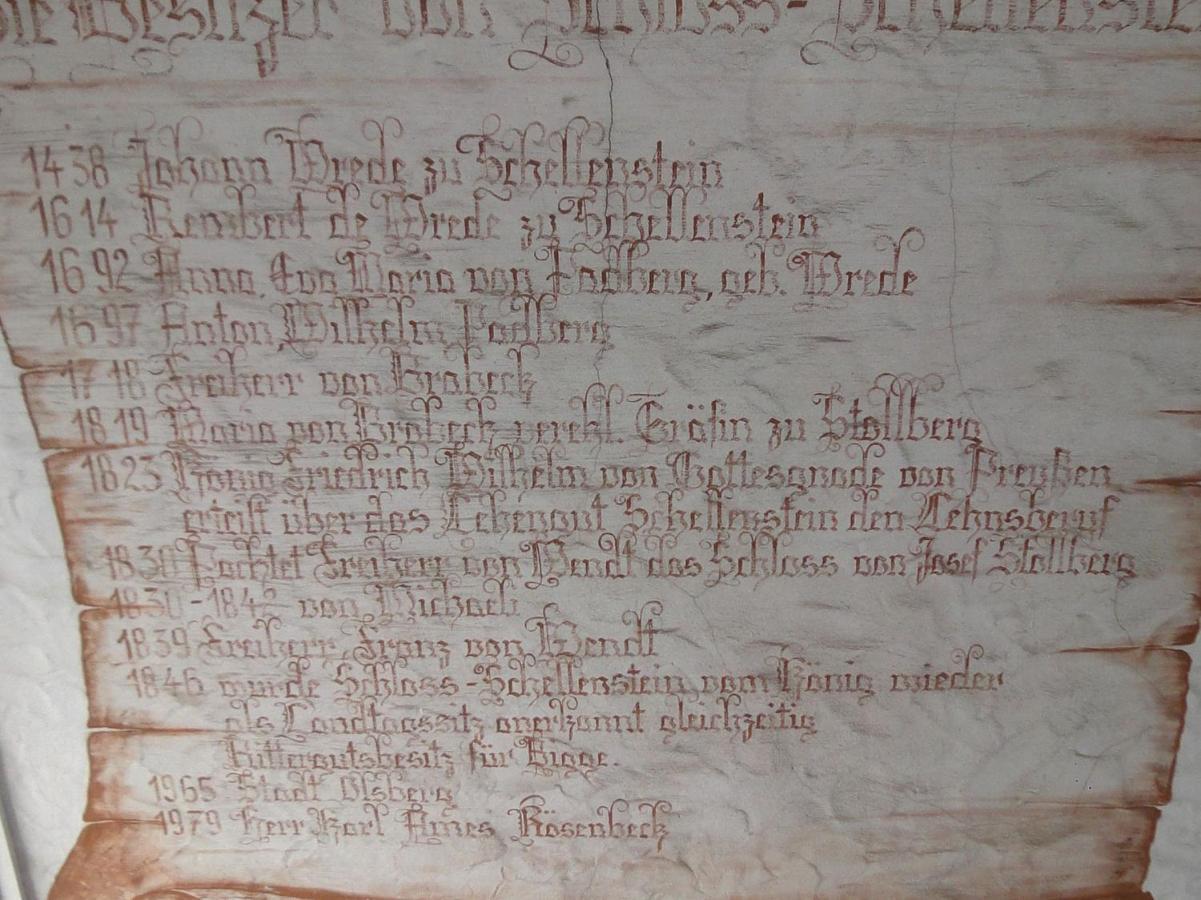 Die Besitzer von Schloss-Schellenstein
1438 Johann Wrede zu Schellenstein
1614 Rembert de Wrede zu Schellenstein
1692 Anna, Eva Maria von Padberg, geb. Wrede
1697 Anton, Wilhelm Padberg
1718 Freiherr von Brabeck
1819 Maria von Brabeck verehl. Gräfin zu Stollberg
1823 König Friedrich Wilhelm von Gottesgnade von Preußen
erteilt über das Lehengut Schellenstein den Lehnsberuf
1830 Pachtet Freiherr von Wendt das Schloss von Josef Stollberg
1830-1842 von Michael
1839 Freiherr, Franz von Wendt
1846 wurde Schloss-Schellenstein vom König wieder
als Landtagssitz anerkannt gleichzeitig
Rittergutsbesitz für Bigge.
1965 Stadt Olsberg
1979 Herr Karl Ames Rösenbeck